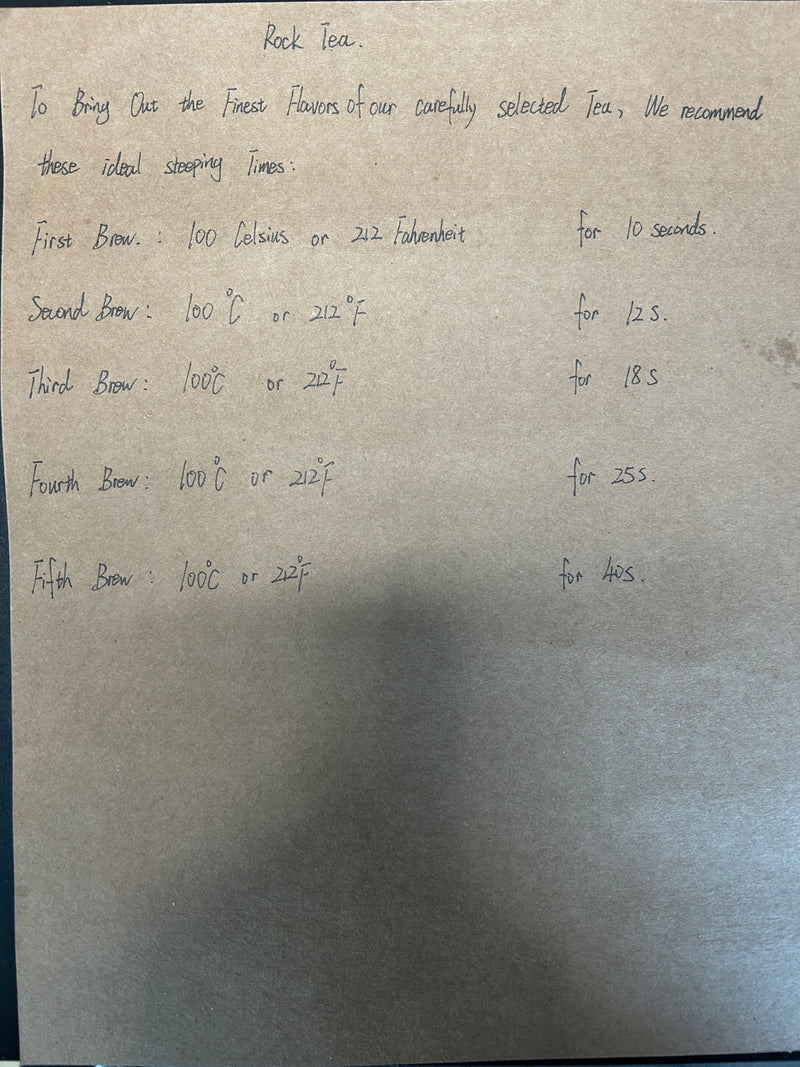 Rock Tea.
To Bring Out the Finest Flavors of our carefully selected Tea, We recommend
these ideal steeping Times:
First Brew. : 100 Celsius or 212 Fahrenheit for 10 seconds.
Second Brew: 100 °C or 212 °F for 12 s.
Third Brew: 100°C or 212°F for 18 s
Fourth Brew: 100°C or 212°F for 25s.
Fifth Brew : 100°C or 212°F for 40s.